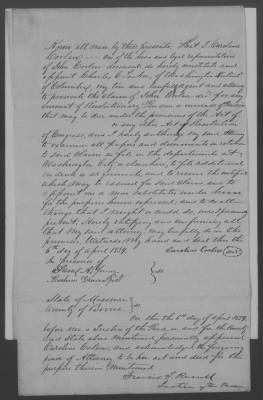 Know all men by these presents, That I Caroline
Corlew one of the heirs and legal representatives
of John Corlew deceased do hereby constitute and
appoint Charles C. Tucker, of Washington District
of Columbia, my true and lawful agent and attorney
to prosecute the claim of John Corlew dec'd for any
amount of Revolutionary Pension or increase of Pension
that may be due under the provisions of the Act of
or any other Act or Resolution
of Congress, and I hereby authorize my said Attorney
to examine all papers and documents in relation
to said claim on file in the departments at
Washington City or elsewhere, to file additional
evidence or arguments, and to receive the certificate
which may be issued for said claim, and to
appoint one or more substitutes under him
for the purposes herein expressed; and to do all
things that I might or could do, were I personally
present. Hereby ratifying and confirming all
that my said attorney may lawfully do in the
premises. Witness my hand and seal this the
6th day of April 1859. Caroline Corlew (seal)
In presence of
State of Missouri
County of Boone
On this the 6th day of April 1859,
before me a Justice of the Peace, in and for the County
and State above mentioned, personally appeared
Caroline Corlew and acknowledged the foregoing
power of Attorney to be her act and deed for the
purposes therein mentioned
Francis T. Russell
Justice of the Peace